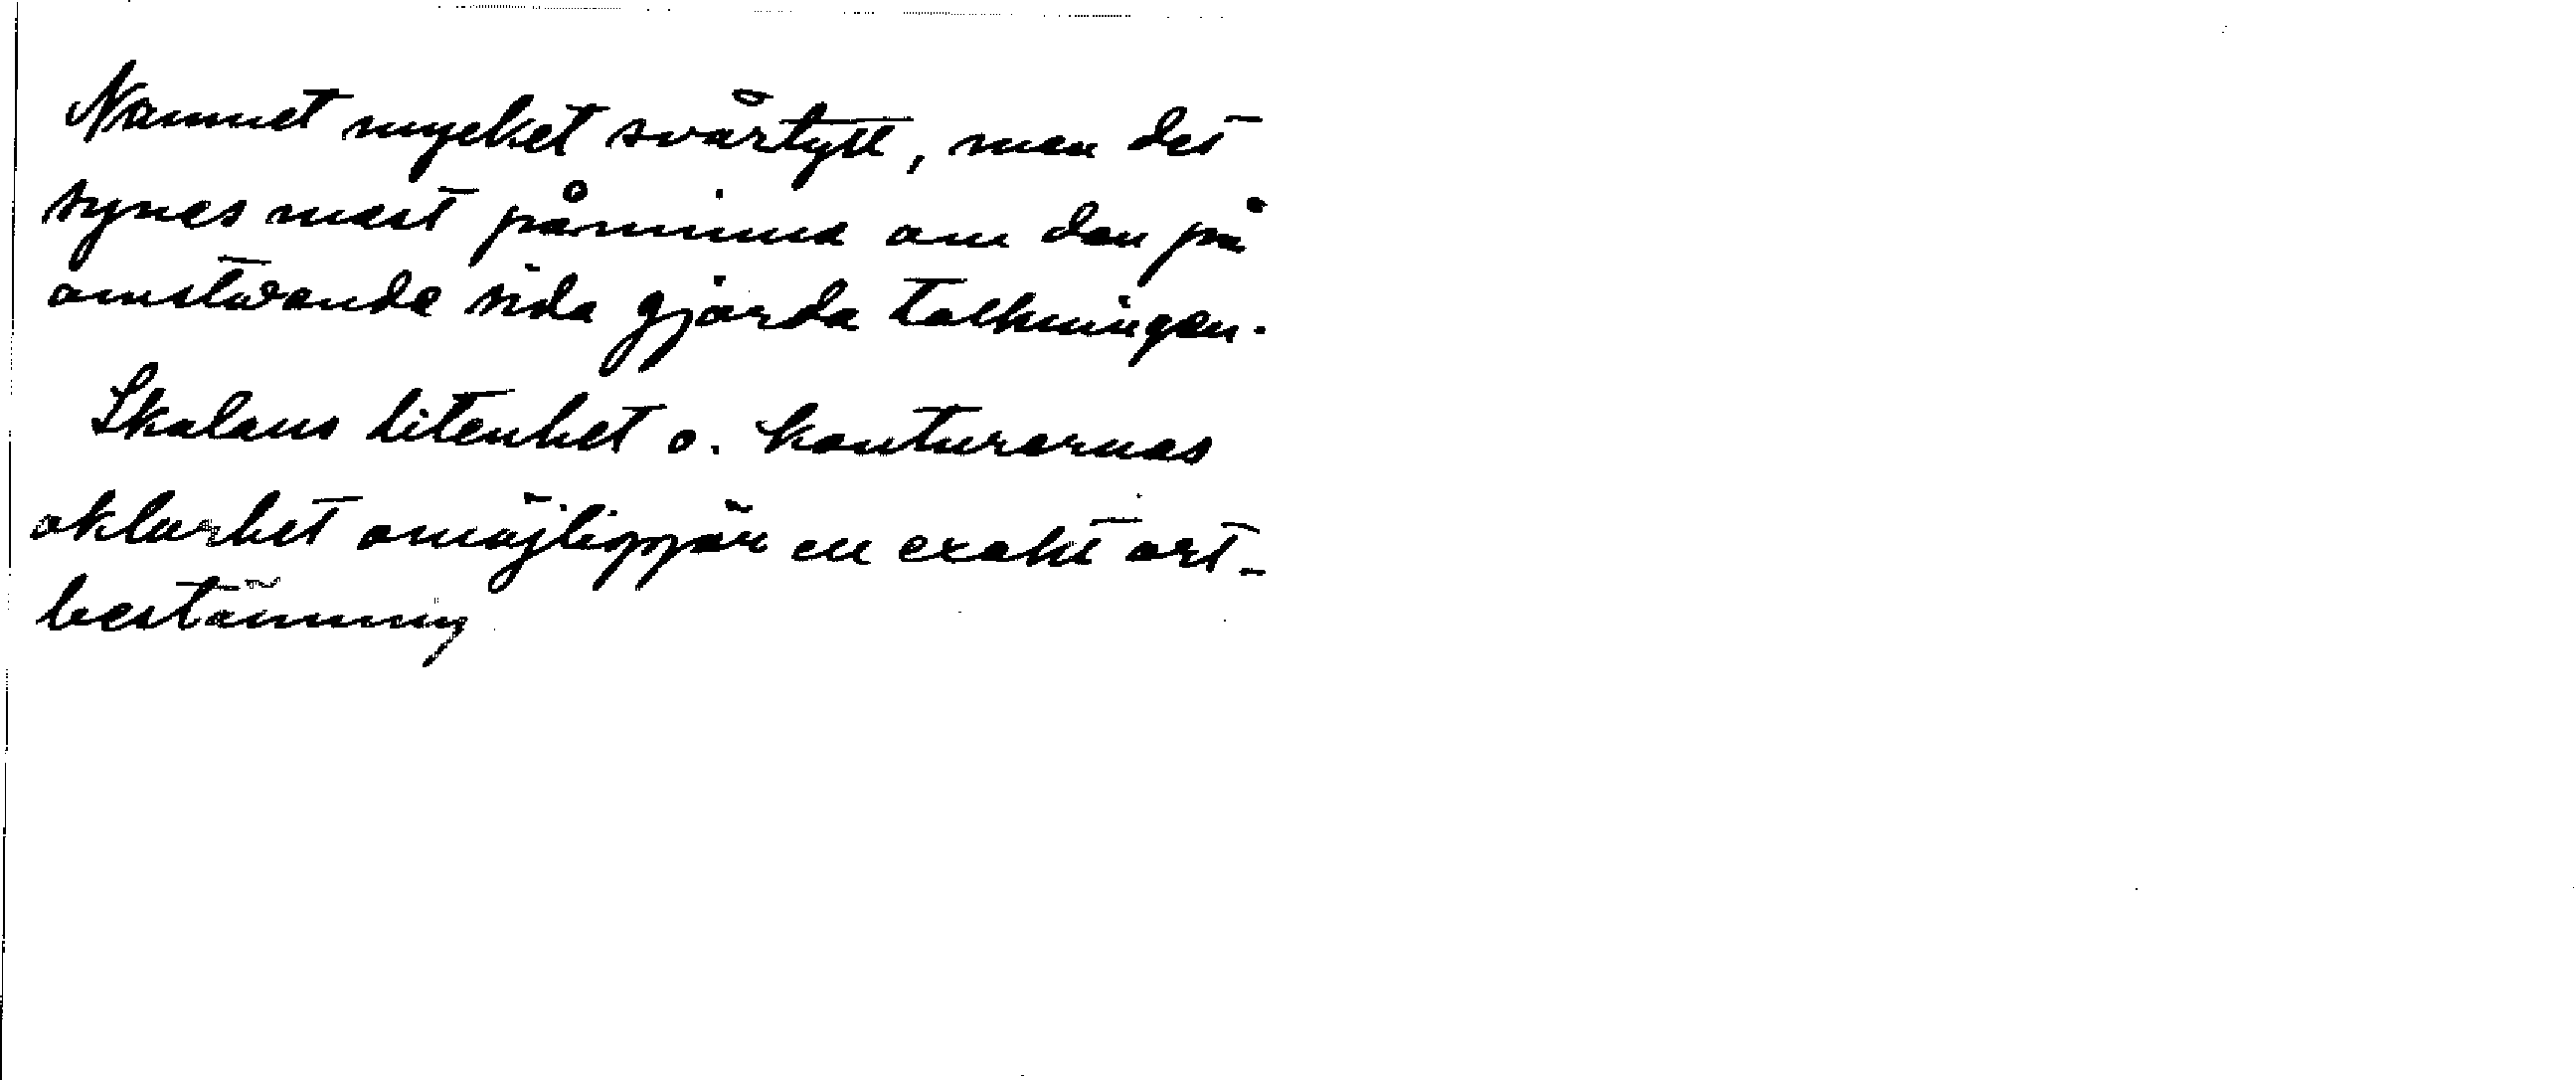 Namnet mycket svårtytt, men det
synes mest påminna om den på
omstående sida gjorda tolkningen.
Skalans litenhet o. konturernas
oklarhet omöjliggör en exakt ort-
bestämning